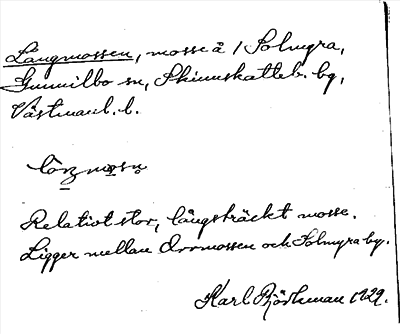 Långmossen, mosse å 1 Solmyra,
Gunnilbo sn, Skinnskatteb. bg,
Västmanl. l.
Relativt stor, långsträckt mosse.
Ligger mellan Orrmossen och Solmyra by.
Karl Björkman 1929.